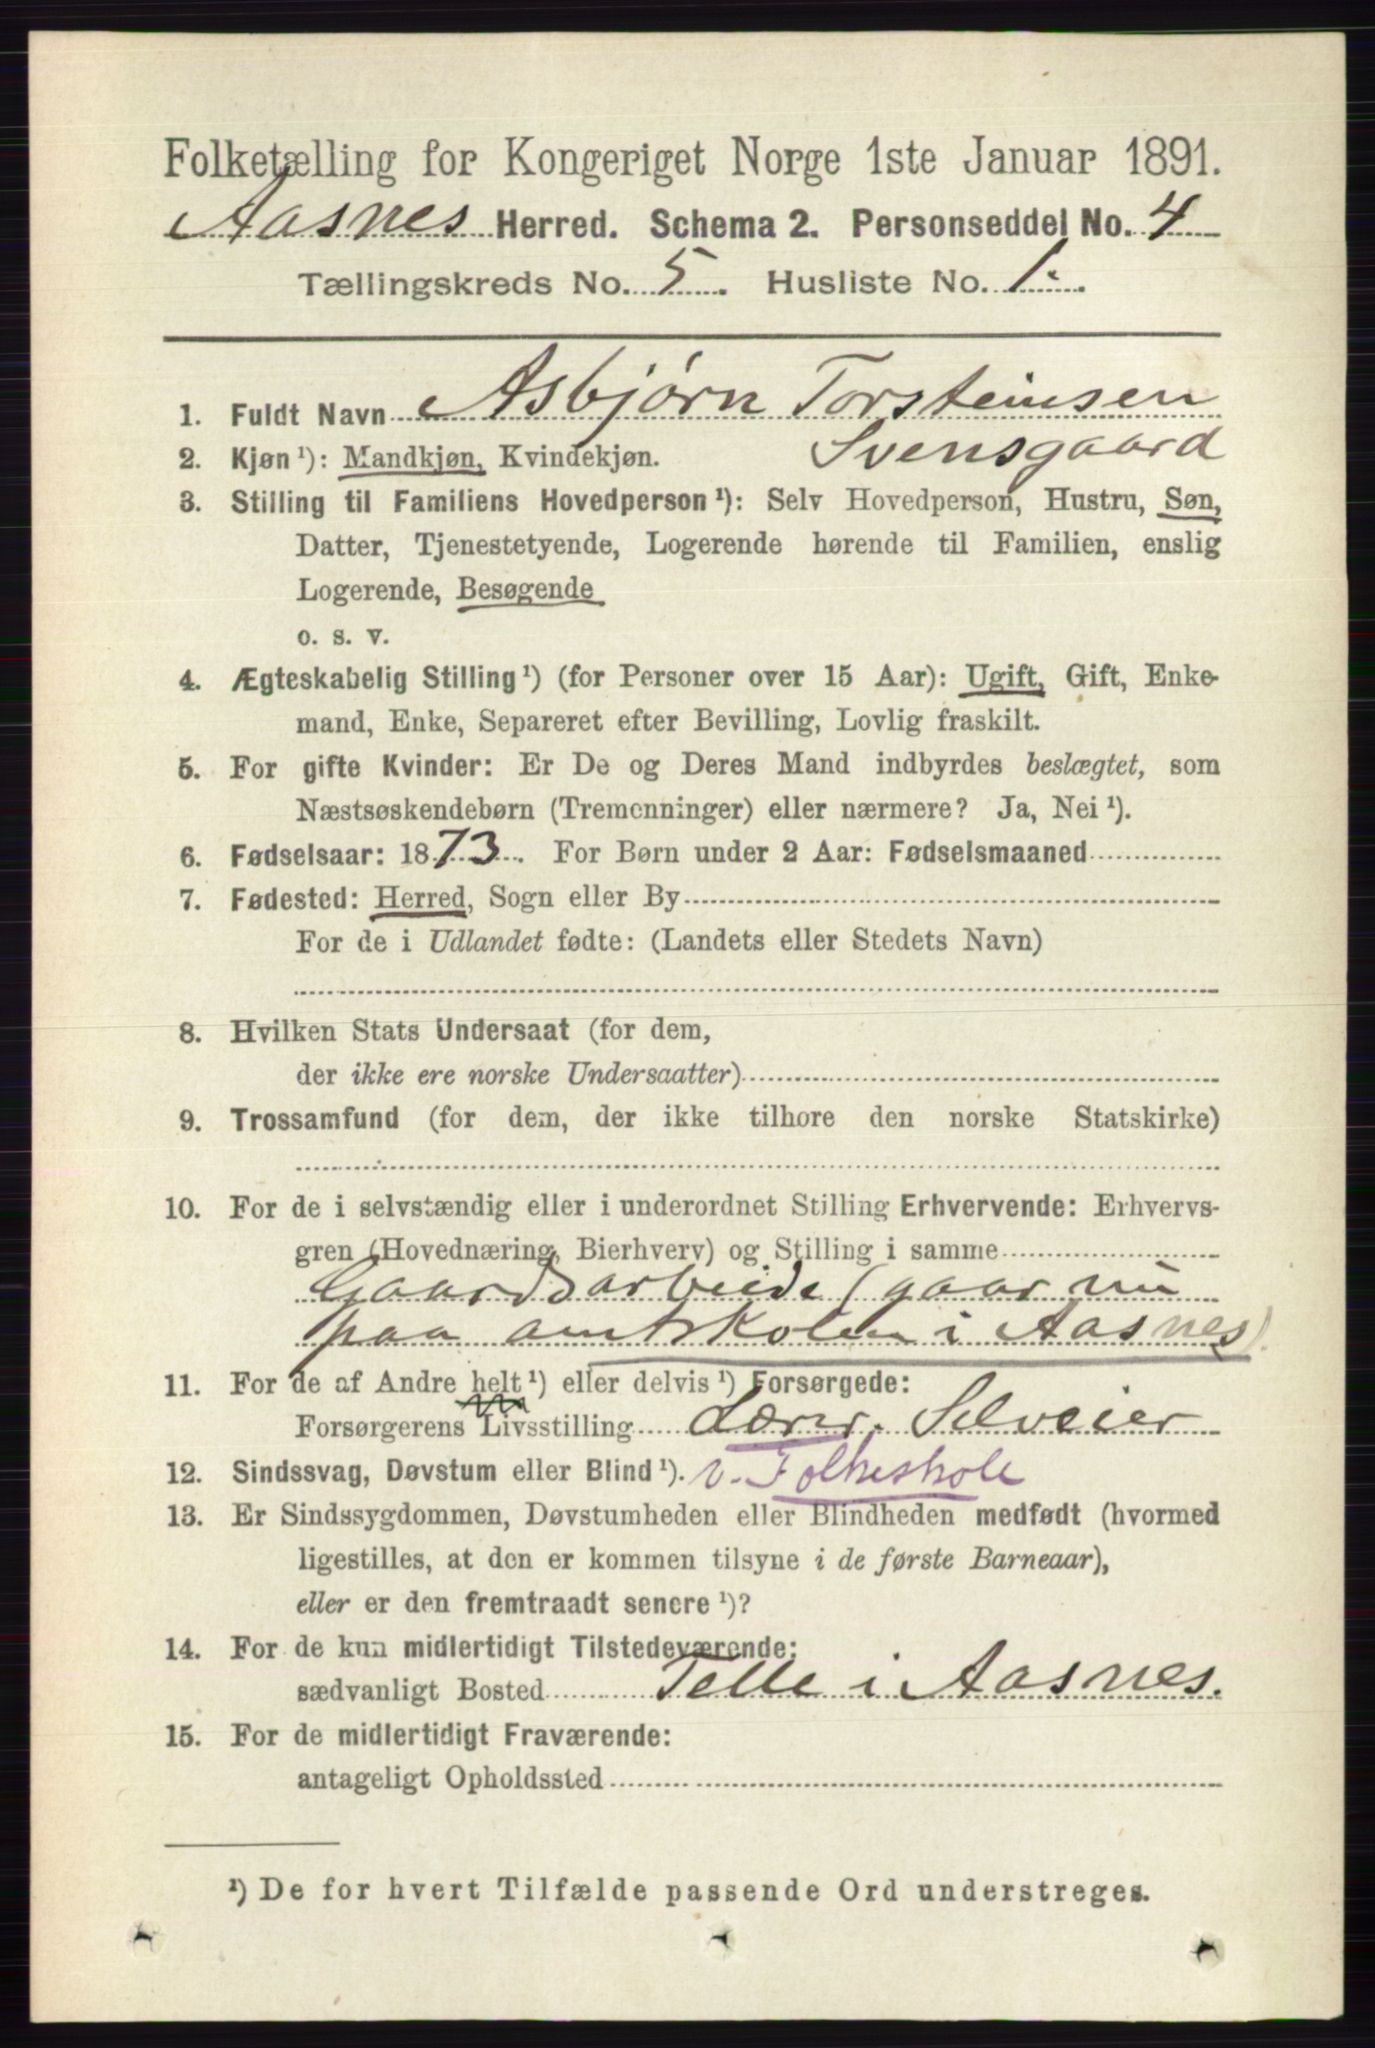 Folketælling for Kongeriget Norge 1ste Januar 1891.
Aasnes Herred. Schema 2. Personseddel No. 4
Tællingskreds No. 5. Husliste No. 1.
1. Fuldt Navn Asbjørn Torsteinsen
Svensgaard
2. Kjøn¹): Mandkjøn, Kvindekjøn.
3. Stilling til Familiens Hovedperson¹): Selv Hovedperson, Hustru, Søn,
Datter, Tjenestetyende, Logerende hørende til Familien, enslig
Logerende, Besøgende
o. s. v.
4. Ægteskabelig Stilling¹) (for Personer over 15 Aar): Ugift, Gift, Enke-
mand, Enke, Separeret efter Bevilling, Lovlig fraskilt.
5. For gifte Kvinder: Er De og Deres Mand indbyrdes beslægtet, som
Næstsøskendebørn (Tremenninger) eller nærmere? Ja, Nei¹).
6. Fødselsaar: 1873. For Børn under 2 Aar: Fødselsmaaned
7. Fødested: Herred, Sogn eller By
For de i Udlandet fødte: (Landets eller Stedets Navn)
8. Hvilken Stats Undersaat (for dem,
der ikke ere norske Undersaatter)
9. Trossamfund (for dem, der ikke tilhøre den norske Statskirke)
10. For de i selvstændig eller i underordnet Stilling Erhvervende: Erhvervs-
gren (Hovednæring, Bierhverv) og Stilling i samme
Gaardsarbeide (gaar nu
paa amtskolen i Aasnes).
11. For de af Andre helt¹) eller delvis¹) Forsørgede:
Forsørgerens Livsstilling Lærer. Selveier
v. Folkeskole
12. Sindssvag, Døvstum eller Blind¹).
13. Er Sindssygdommen, Døvstumheden eller Blindheden medfødt (hvormed
ligestilles, at den er kommen tilsyne i de første Barneaar),
eller er den fremtraadt senere¹)?
14. For de kun midlertidigt Tilstedeværende:
sædvanligt Bosted Telle i Aasnes.
15. For de midlertidigt Fraværende:
antageligt Opholdssted
¹) De for hvert Tilfælde passende Ord understreges.